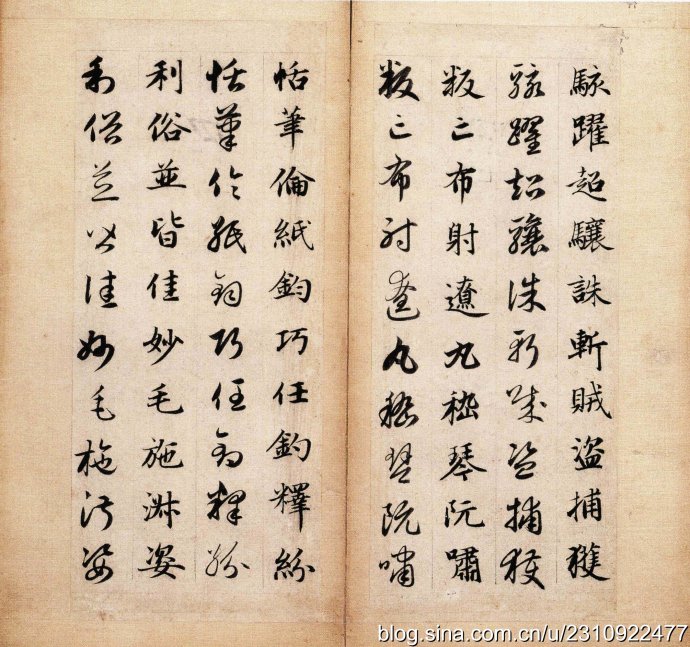 駭躍超驤誅斬賊盜捕獲
駭躍超驤誅斬賊盜捕獲
叛亡布射遼丸嵇琴阮嘯
叛亡布射遼丸嵇琴阮嘯
恬筆倫紙鈞巧任釣釋紛
恬筆倫紙鈞巧任釣釋紛
利俗並皆佳妙毛施淑姿
利俗並皆佳妙毛施淑姿
blog.sina.com.cn/u/2310922477